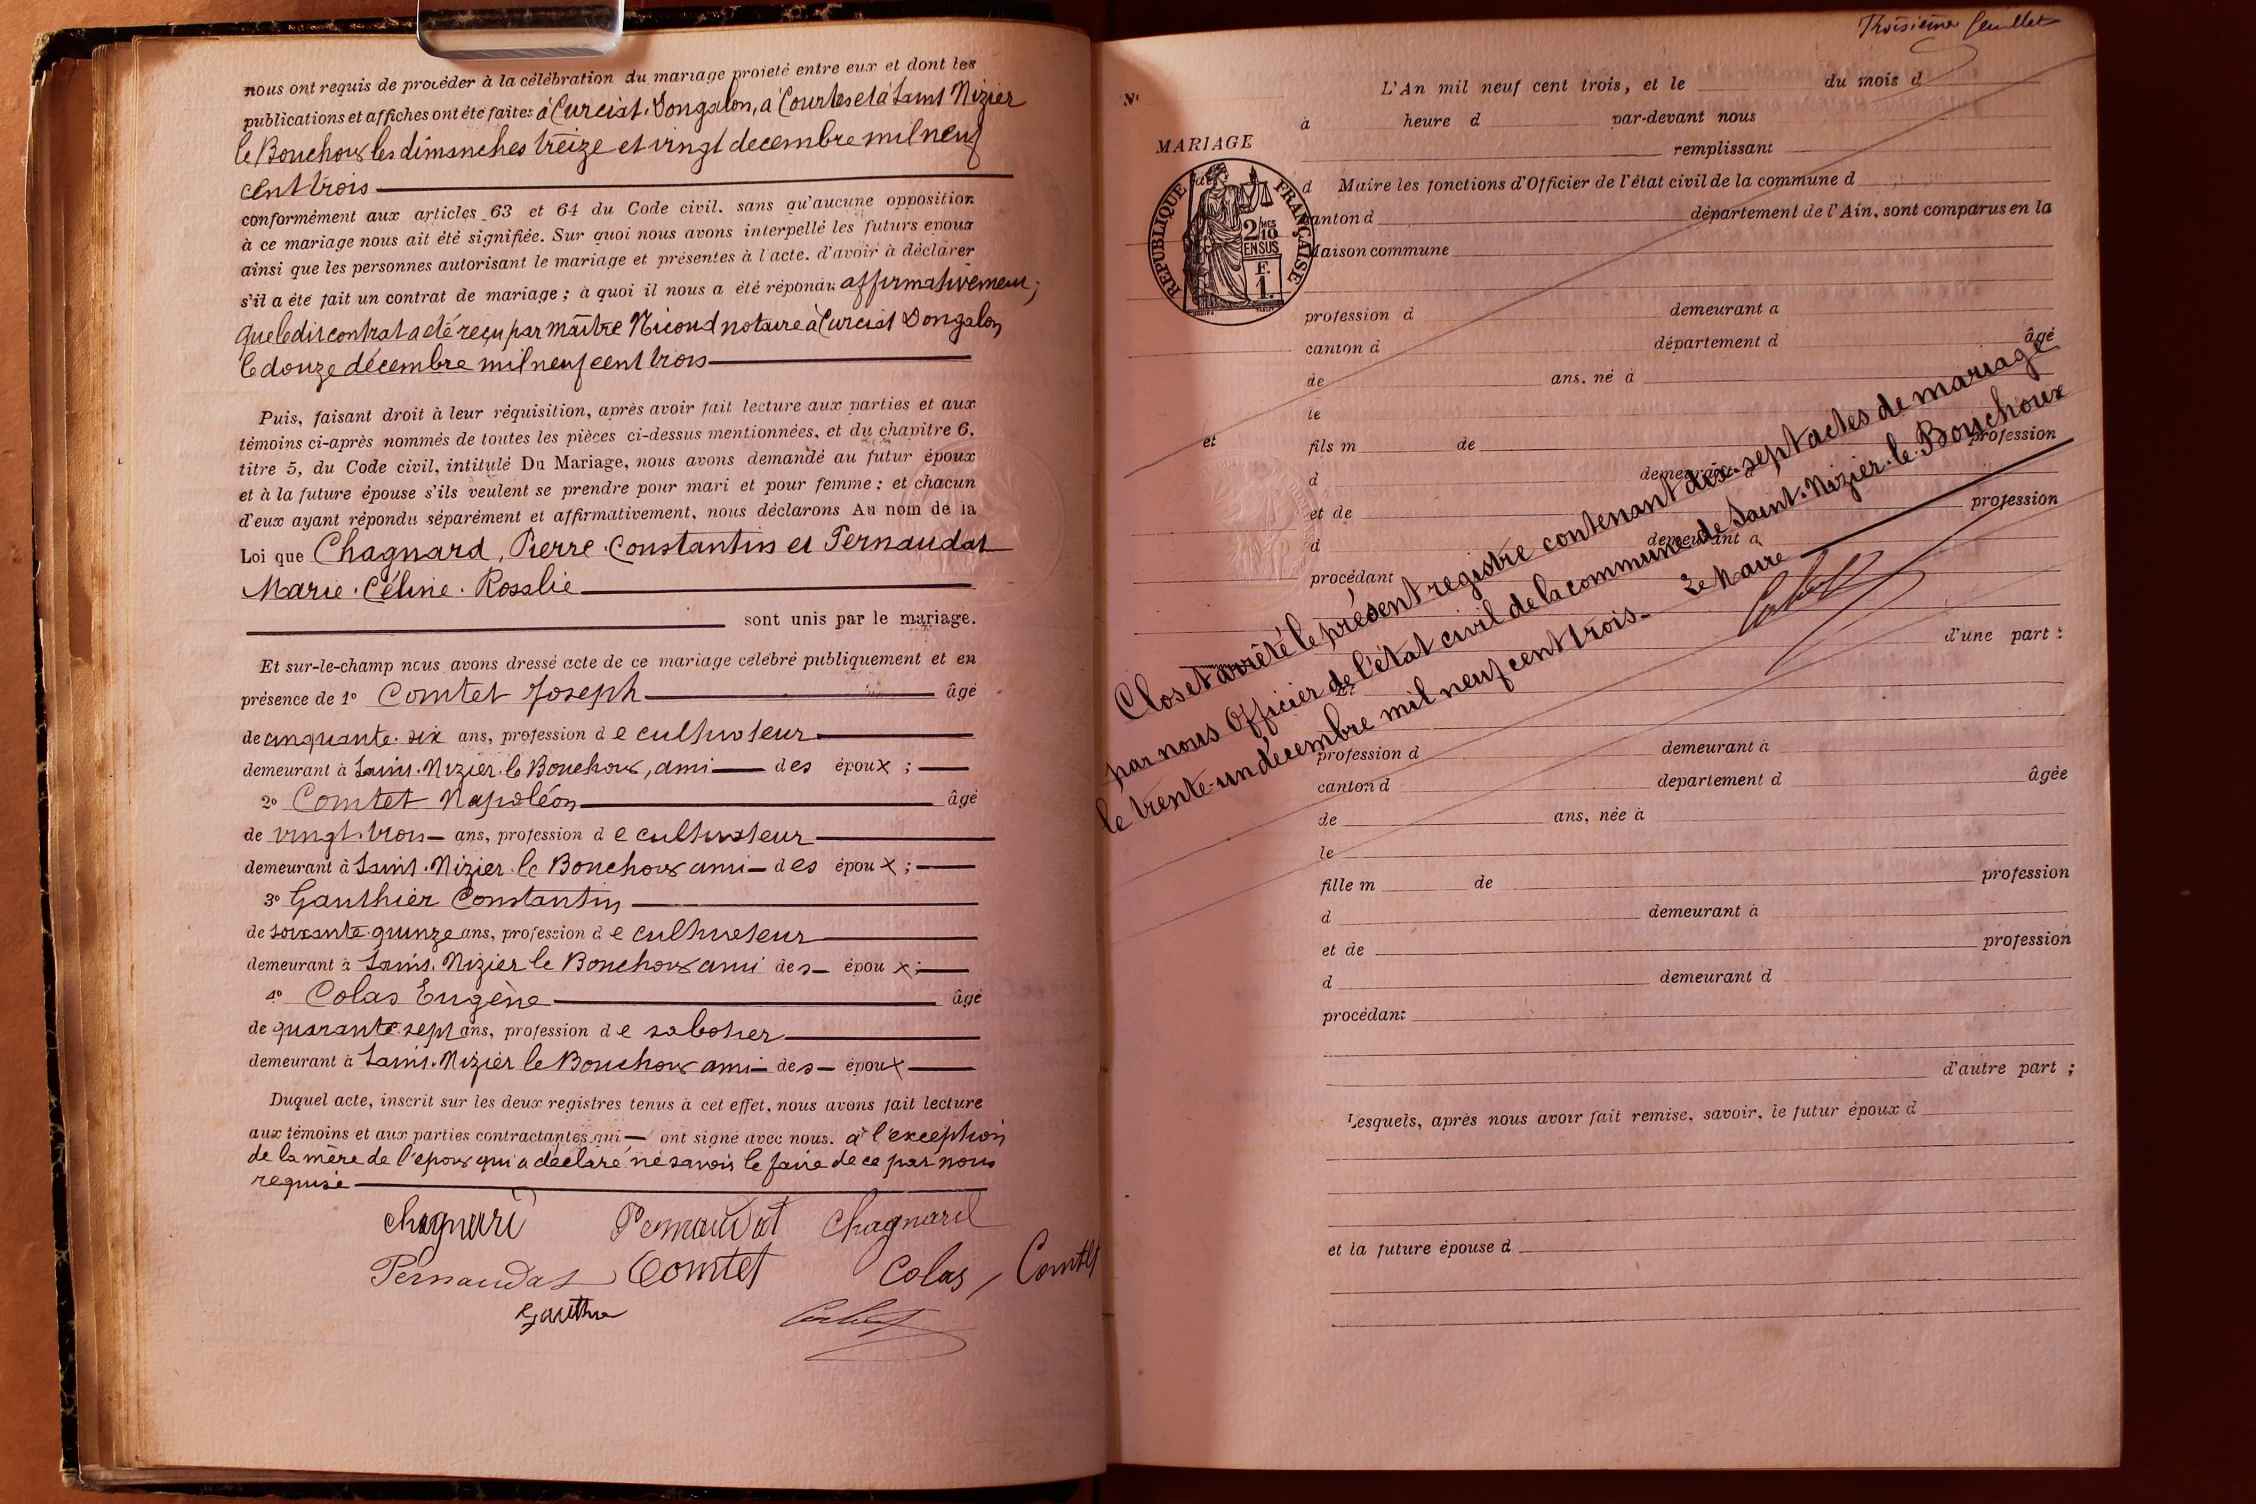 nous ont requis de procéder à la célébration du mariage projeté entre eux et dont les
publications et affiches ont été faites à Curciat-Dongalon, à Courtes et à Saint Nizier
le Bouchoux les dimanches treize et vingt decembre mil neuf
cent trois
conformément aux articles 63 et 64 du Code civil, sans qu'aucune opposition
à ce mariage nous ait été signifiée. Sur quoi nous avons interpellé les futurs époux
ainsi que les personnes autorisant le mariage et présentes à l'acte, d'avoir à déclarer
s'il a été fait un contrat de mariage ; à quoi il nous a été répondu affirmativement ;
que ledit contrat a été reçu par maître Nicoud notaire à Curciat Dongalon
le douze décembre mil neuf cent trois
Puis, faisant droit à leur réquisition, après avoir fait lecture aux parties et aux
témoins ci-après nommés de toutes les pièces ci-dessus mentionnées, et du chapitre 6,
titre 5, du Code civil, intitulé Du Mariage, nous avons demandé au futur époux
et à la future épouse s'ils veulent se prendre pour mari et pour femme ; et chacun
d'eux ayant répondu séparément et affirmativement, nous déclarons Au nom de la
Loi que Chagnard, Pierre-Constantin et Pernaudat
Marie-Céline-Rosalie
sont unis par le mariage.
Et sur-le-champ nous avons dressé acte de ce mariage célébré publiquement et en
présence de 1° Comtet Joseph âgé
de cinquante-six ans, profession de cultivateur
demeurant à Saint-Nizier-le Bouchoux, ami des époux ;
2° Comtet Napoléon âgé
de vingt-trois ans, profession de cultivateur
demeurant à Saint-Nizier-le Bouchoux ami des époux ;
3° Gauthier Constantin
de soixante-quinze ans, profession de cultivateur
demeurant à Saint-Nizier le Bouchoux ami des époux ;
4° Colas Eugène âgé
de quarante-sept ans, profession de sabotier
demeurant à Saint-Nizier le Bouchoux ami des époux
Duquel acte, inscrit sur les deux registres tenus à cet effet, nous avons fait lecture
aux témoins et aux parties contractantes qui ont signé avec nous. à l'exception
de la mère de l'époux qui a déclaré ne savoir le faire de ce par nous
requise
Chagnard Pernaudat Chagnard
Pernaudat Comtet Colas Comtet
Gauthier
Troisième feuillet
N°
MARIAGE
RÉPUBLIQUE FRANÇAISE
2/10 EN SUS
F.
1.
et
L'An mil neuf cent trois, et le du mois d
à heure d par-devant nous
remplissant
d Maire les fonctions d'Officier de l'état civil de la commune d
canton d département de l'Ain, sont comparus en la
Maison commune
profession d demeurant à
canton d département d âgé
de ans, né à
le
fils m de profession
d demeurant à
et de profession
d demeurant à
procédant
d'une part :
Et
profession d demeurant à
canton d département d âgée
de ans, née à
le
fille m de profession
d demeurant à
et de profession
d demeurant d
procédant
d'autre part ;
Lesquels, après nous avoir fait remise, savoir, le futur époux d
et la future épouse d
Clos et arrêté le présent registre contenant dix-sept actes de mariage
par nous Officier de l'état civil de la commune de Saint-Nizier-le-Bouchoux
le trente-un décembre mil neuf cent trois - Le Maire